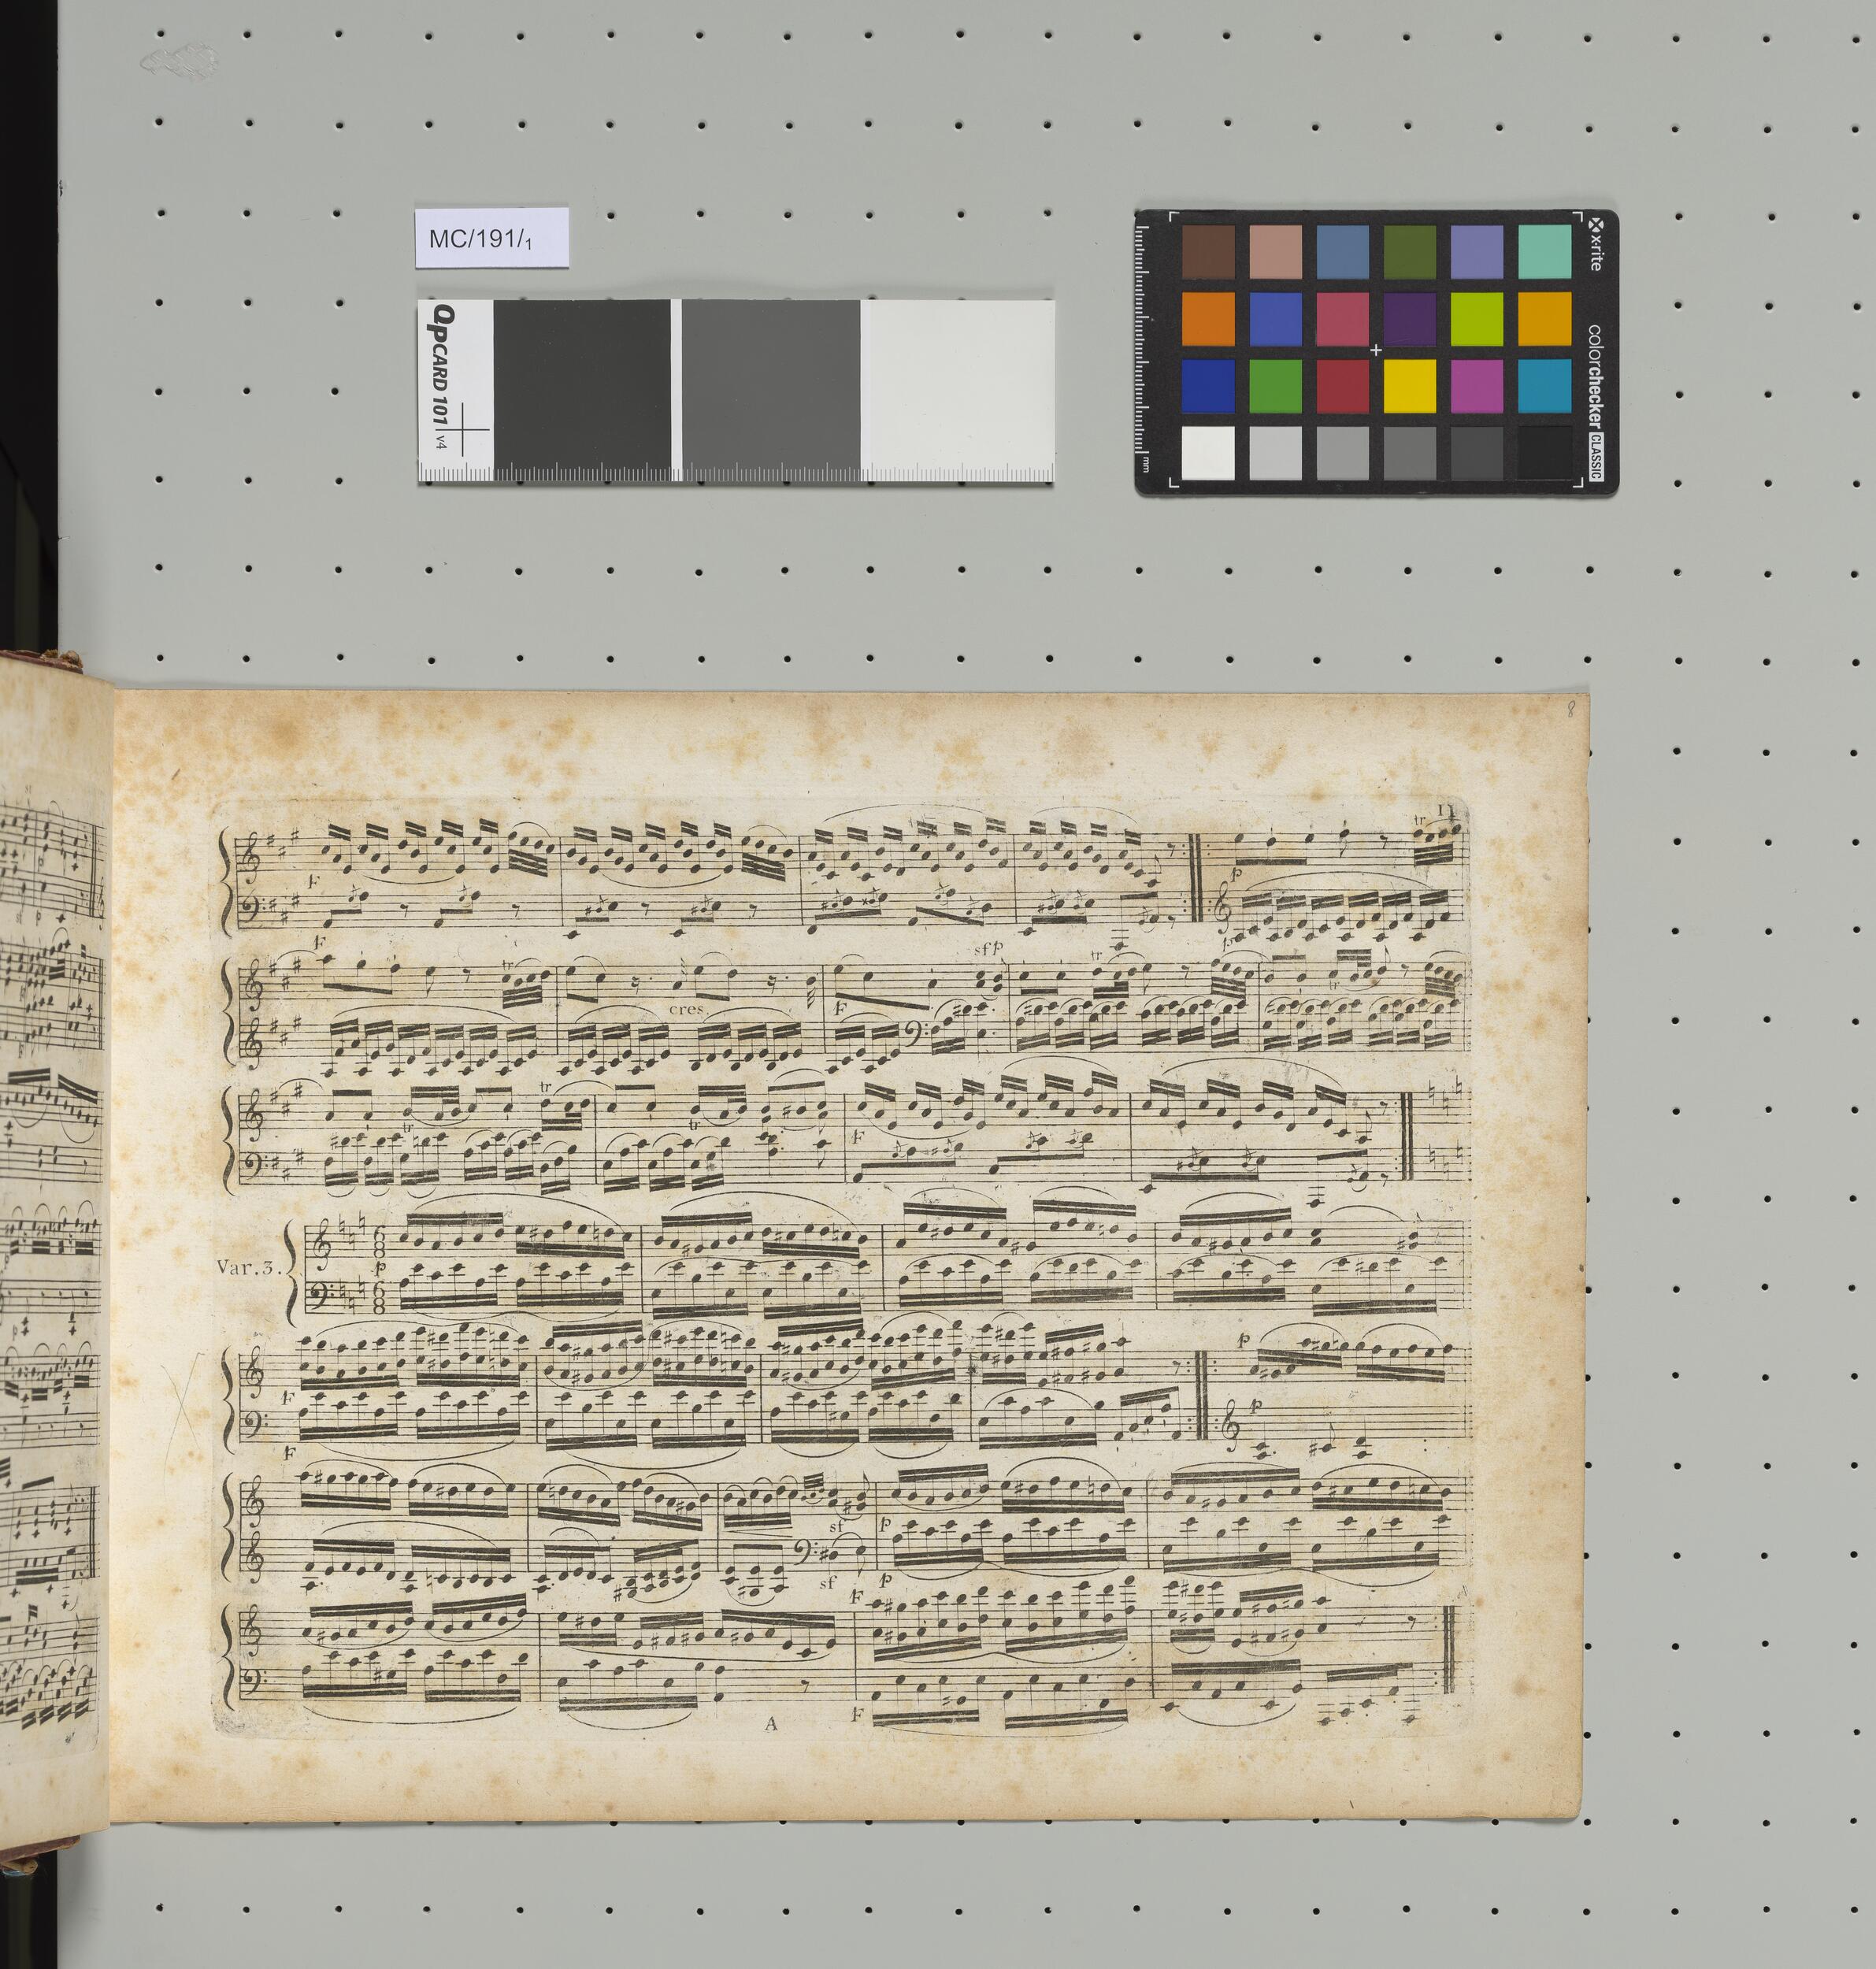 MC/191/1
QPCARD 101 v4
x-rite
colorchecker CLASSIC
mm
8
11
tr
F
p
F
p
sfp
tr
tr
cres
F
tr
tr
tr
tr
F
Var.3.
p
6 8
6 8
F
F
p
p
sf
p
sf
p
F
A
F